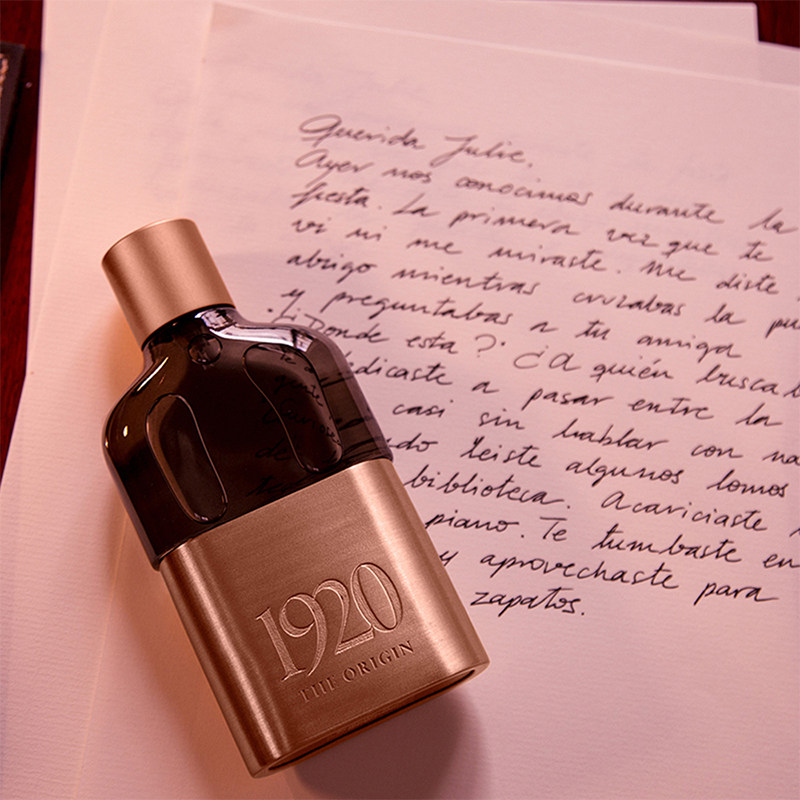 Querida Julie.
Ayer nos conocimos durante la
fiesta. La primera vez que te
vi ni me miraste. Me diste
abrigo mientras cruzabas la pu
y preguntabas a tu amiga
¿Donde esta? ¿A quién busca
edicaste a pasar entre la
casi sin hablar con na
do leiste algunos lomos
biblioteca. Acariciaste
piano. Te tumbaste en
y aprovechaste para
zapatos.
1920
THE ORIGIN